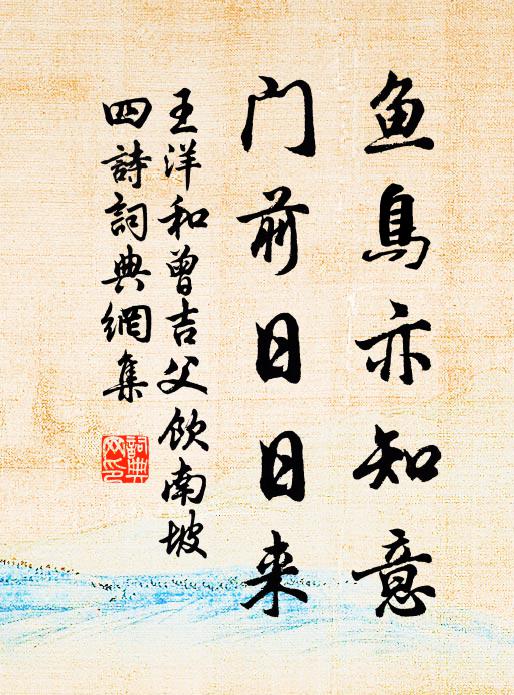 鱼鳥亦知意
门前日日来
王洋和曾吉父饮南坡
四詩詞典網集
詞典